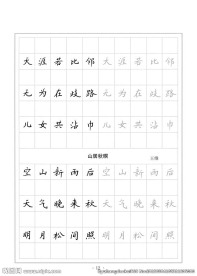 天涯若比邻天涯若比邻
无为在歧路无为在歧路
儿女共沾巾儿女共沾巾
山居秋暝
王维
空山新雨后空山新雨后
天气晚来秋天气晚来秋
明月松间照明月松间照